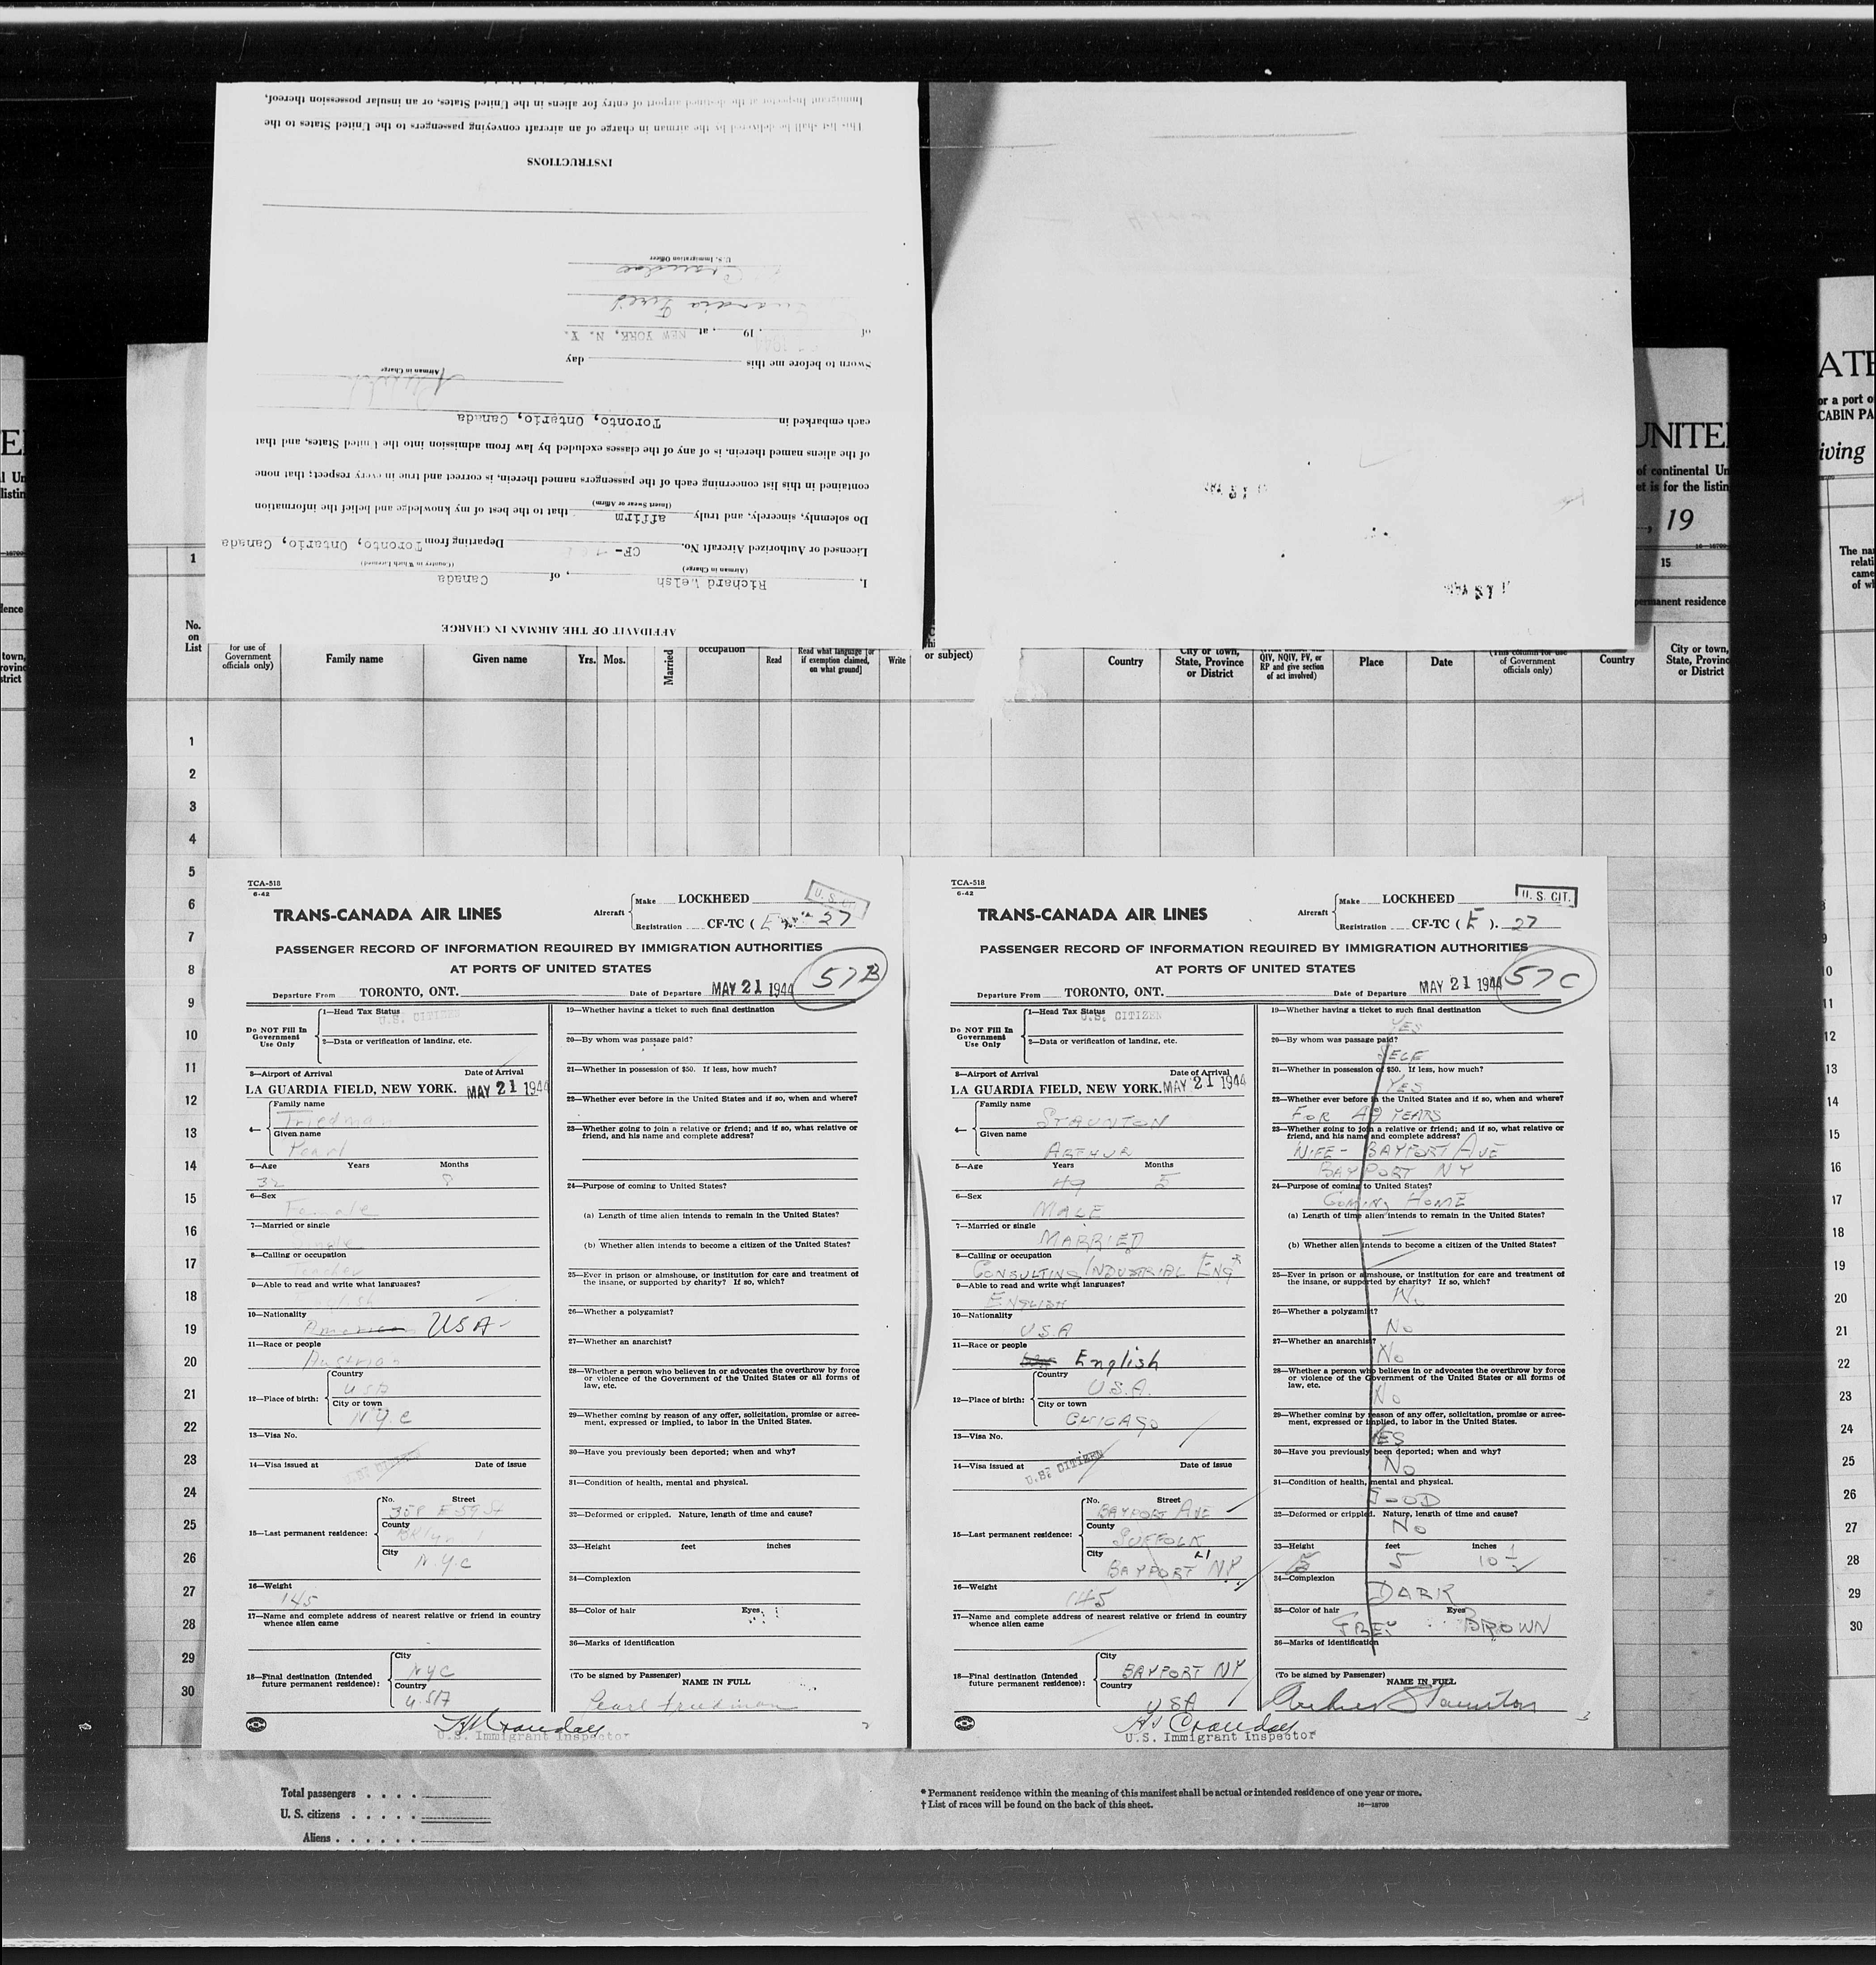 AFFIDAVIT OF THE AIRMAN IN CHARGE
I, Richard Welsh, of Canada
(Airman in Charge) (Country in Which Licensed)
Licensed or Authorized Aircraft No. CF- Departing from Toronto, Ontario, Canada
Do solemnly, sincerely, and truly affirm that to the best of my knowledge and belief the information
(Insert Swear or Affirm)
contained in this list concerning each of the passengers named therein, is correct and true in every respect; that none
of the aliens named therein, is of any of the classes excluded by law from admission into the United States, and that
each embarked in Toronto, Ontario, Canada
Airman in Charge
Sworn to before me this day
of , 19 , at NEW YORK, N. Y.
U.S. Immigration Officer
INSTRUCTIONS
This list shall be delivered by the airman in charge of an aircraft conveying passengers to the United States to the
Immigrant Inspector at the destined airport of entry for aliens in the United States, or an insular possession thereof,
No. on List
(for use of Government officials only)
Family name
Given name
Yrs. Mos.
Married
occupation
Read
Read what language [or if exemption claimed, on what ground]
Write
or subject)
Country
City or town, State, Province or District
QIV, NQIV, PV, or RP and give section of act involved)
Place
Date
(This column for use of Government officials only)
Country
City or town, State, Province or District
UNITE
of continental Un
et is for the listin
, 19
15
permanent residence
ATE
or a port o
CABIN PA
iving
1
2
3
4
5
6
7
8
9
10
11
12
13
14
15
16
17
18
19
20
21
22
23
24
25
26
27
28
29
30
TCA-518
6-42
TRANS-CANADA AIR LINES
Aircraft Make LOCKHEED
Registration CF-TC (E 27
U. S. CIT.
PASSENGER RECORD OF INFORMATION REQUIRED BY IMMIGRATION AUTHORITIES
AT PORTS OF UNITED STATES
57B
Departure From TORONTO, ONT. Date of Departure MAY 21 1944
Do NOT Fill In Government Use Only
1—Head Tax Status
U.S. CITIZEN
2—Data or verification of landing, etc.
3—Airport of Arrival Date of Arrival
LA GUARDIA FIELD, NEW YORK. MAY 21 1944
4— Family name
Friedman
Given name
Pearl
5—Age Years Months
32 8
6—Sex
Female
7—Married or single
Single
8—Calling or occupation
Teacher
9—Able to read and write what languages?
English
10—Nationality
American USA
11—Race or people
Austrian
12—Place of birth: Country
USA
City or town
N.Y.C
13—Visa No.
14—Visa issued at Date of issue
15—Last permanent residence: No. Street
358 E 59 St
County
Bklyn
City
N.Y.C
16—Weight
145
17—Name and complete address of nearest relative or friend in country
whence alien came
18—Final destination (Intended future permanent residence): City
NYC
Country
USA
19—Whether having a ticket to such final destination
20—By whom was passage paid?
21—Whether in possession of $50. If less, how much?
22—Whether ever before in the United States and if so, when and where?
23—Whether going to join a relative or friend; and if so, what relative or
friend, and his name and complete address?
24—Purpose of coming to United States?
(a) Length of time alien intends to remain in the United States?
(b) Whether alien intends to become a citizen of the United States?
25—Ever in prison or almshouse, or institution for care and treatment of
the insane, or supported by charity? If so, which?
26—Whether a polygamist?
27—Whether an anarchist?
28—Whether a person who believes in or advocates the overthrow by force
or violence of the Government of the United States or all forms of
law, etc.
29—Whether coming by reason of any offer, solicitation, promise or agree-
ment, expressed or implied, to labor in the United States.
30—Have you previously been deported; when and why?
31—Condition of health, mental and physical.
32—Deformed or crippled. Nature, length of time and cause?
33—Height feet inches
34—Complexion
35—Color of hair Eyes
36—Marks of identification
(To be signed by Passenger) NAME IN FULL
Pearl Friedman
U.S. Immigrant Inspector
2
TCA-518
6-42
TRANS-CANADA AIR LINES
Aircraft Make LOCKHEED
Registration CF-TC (E). 27
U. S. CIT.
PASSENGER RECORD OF INFORMATION REQUIRED BY IMMIGRATION AUTHORITIES
AT PORTS OF UNITED STATES
57C
Departure From TORONTO, ONT. Date of Departure MAY 21 1944
Do NOT Fill In Government Use Only
1—Head Tax Status
U.S. CITIZEN
2—Data or verification of landing, etc.
3—Airport of Arrival Date of Arrival
LA GUARDIA FIELD, NEW YORK. MAY 21 1944
4— Family name
STAUNTON
Given name
ARTHUR
5—Age Years Months
49 5
6—Sex
MALE
7—Married or single
MARRIED
8—Calling or occupation
CONSULTING INDUSTRIAL ENGR
9—Able to read and write what languages?
ENGLISH
10—Nationality
U.S.A
11—Race or people
English
12—Place of birth: Country
U.S.A.
City or town
CHICAGO
13—Visa No.
14—Visa issued at Date of issue
U.S. CITIZEN
15—Last permanent residence: No. Street
BAYPORT AVE
County
SUFFOLK
City
BAYPORT LI NY
16—Weight
145
17—Name and complete address of nearest relative or friend in country
whence alien came
18—Final destination (Intended future permanent residence): City
BAYPORT NY
Country
USA
19—Whether having a ticket to such final destination
YES
20—By whom was passage paid?
SELF
21—Whether in possession of $50. If less, how much?
YES
22—Whether ever before in the United States and if so, when and where?
FOR 49 YEARS
23—Whether going to join a relative or friend; and if so, what relative or
friend, and his name and complete address?
WIFE - BAYPORT AVE
BAYPORT NY
24—Purpose of coming to United States?
COMING HOME
(a) Length of time alien intends to remain in the United States?
(b) Whether alien intends to become a citizen of the United States?
25—Ever in prison or almshouse, or institution for care and treatment of
the insane, or supported by charity? If so, which?
No
26—Whether a polygamist?
No
27—Whether an anarchist?
No
28—Whether a person who believes in or advocates the overthrow by force
or violence of the Government of the United States or all forms of
law, etc.
No
29—Whether coming by reason of any offer, solicitation, promise or agree-
ment, expressed or implied, to labor in the United States.
YES
30—Have you previously been deported; when and why?
No
31—Condition of health, mental and physical.
GOOD
32—Deformed or crippled. Nature, length of time and cause?
No
33—Height feet inches
5 10 1/2
34—Complexion
DARK
35—Color of hair Eyes
GREY BROWN
36—Marks of identification
(To be signed by Passenger) NAME IN FULL
Arthur Staunton
U.S. Immigrant Inspector
3
Total passengers
U. S. citizens
Aliens
* Permanent residence within the meaning of this manifest shall be actual or intended residence of one year or more.
† List of races will be found on the back of this sheet. 16—18709